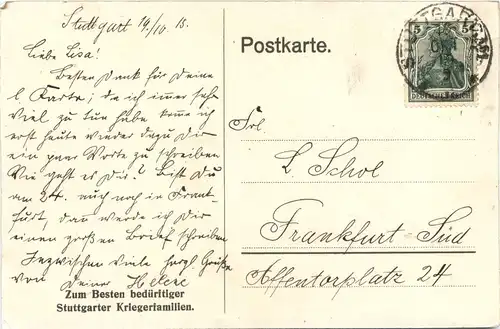 Stuttgart 19./10. 15.
Liebe Lisa!
Besten Dank für Deine
l. Karte; da ich immer sehr
viel zu tun habe komme ich
erst heute wieder dazu Dir
ein paar Worte zu schreiben
Wie geht es Dir? Bist Du
am 24. auch noch in Frank-
furt, dan werde ich Dir
einen großen Brief schreiben
Inzwischen viele herzl. Grüße
von Deiner Helene
Zum Besten bedürftiger
Stuttgarter Kriegerfamilien.
Postkarte.
STUTTGART
5 5
DEUTSCHES REICH
Frl.
L. Schol
Frankfurt-Süd
Affentorplatz 24